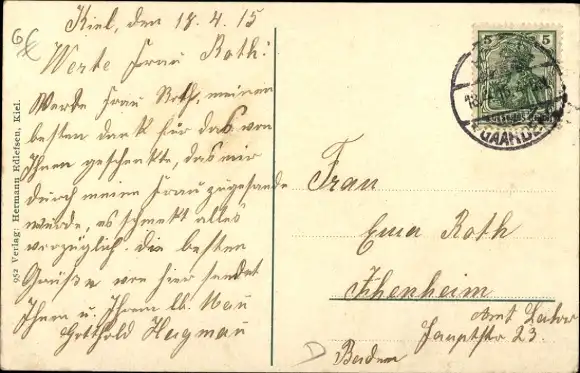 Kiel, den 18.4.15
Werte Frau Roth!
Werte Frau Roth, meinen
besten Dank für das von
Ihnen geschenkte, das mir
durch meine Frau zugesandt
wurde, es schmekt alles
vorzüglich. Die besten
Grüße von hier sendet
Ihnen u. Ihrem lb. Man
Gotthold Hugmau
952 Verlag: Hermann Edlefsen, Kiel.
5 5
GAARDEN
Frau
Ema Roth
Ichenheim
Amt Lahr
Hauptstr 23.
Baden